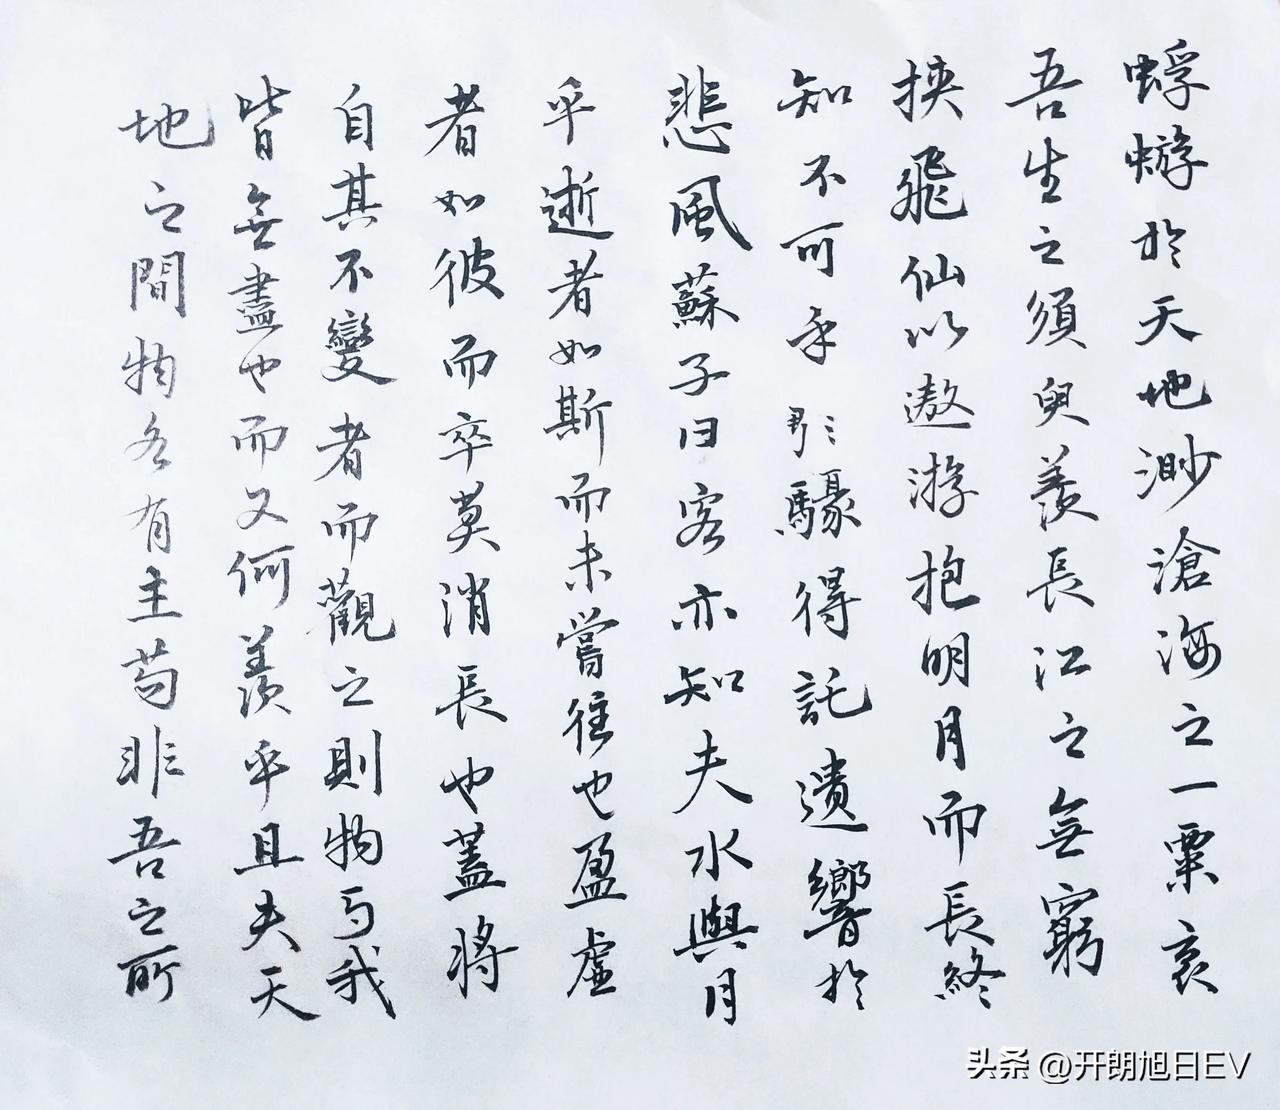 蜉蝣於天地渺滄海之一粟哀
吾生之須臾羨長江之無窮
挾飛仙以遨游抱明月而長終
知不可乎驟得託遺響於
悲風蘇子曰客亦知夫水與月
乎逝者如斯而未嘗往也盈虛
者如彼而卒莫消長也蓋將
自其不變者而觀之則物与我
皆無盡也而又何羨乎且夫天
地之間物各有主苟非吾之所
头条 @开朗旭日EV